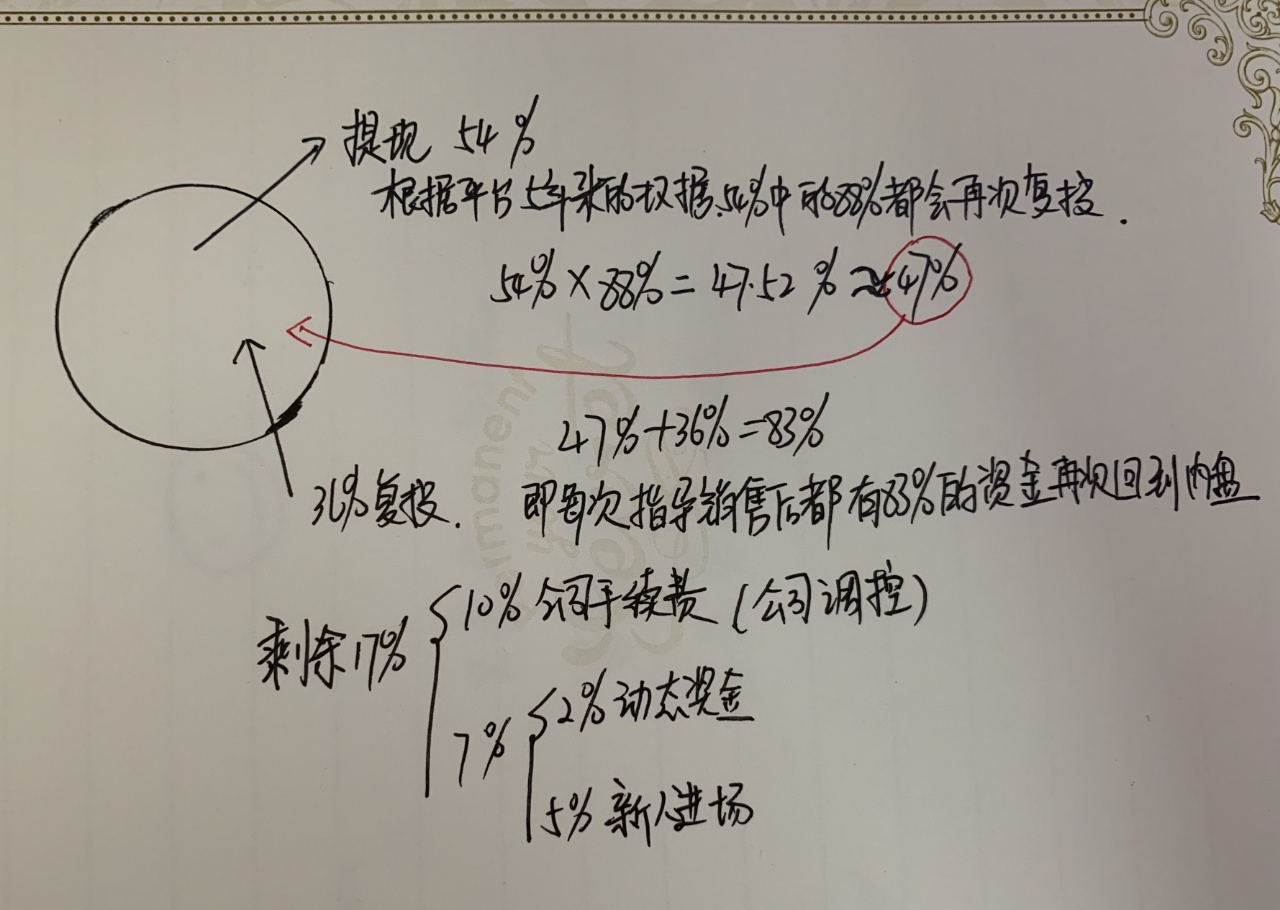 提现 54%
根据平台5年来的权据,54%中的88%都会再次复投.
54%×88%=47.52%≈47%
47%+36%=83%
36%复投.
即每次指导销售后都有83%的资金再次回到内盘
剩余17%
10% 公司手续费(公司调控)
7%
2%动态奖金
5%新人进场